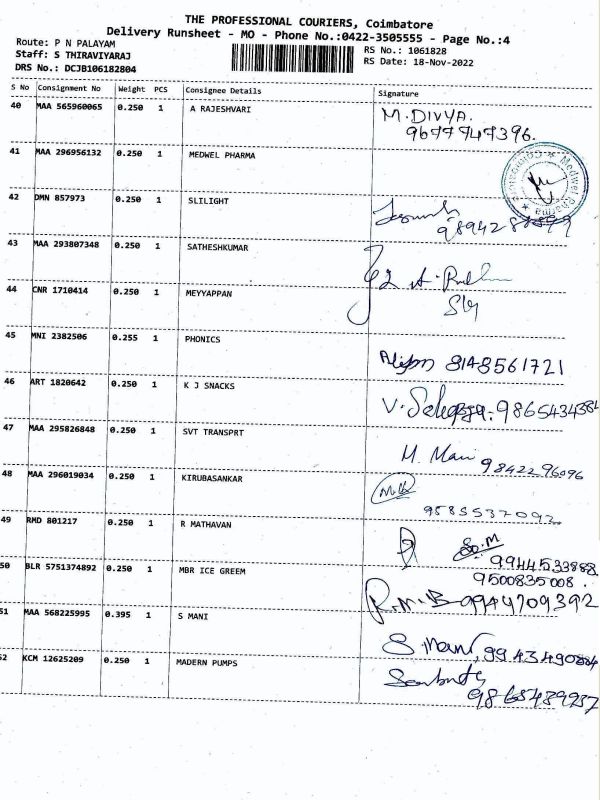 THE PROFESSIONAL COURIERS, Coimbatore
Delivery Runsheet - MO - Phone No.:0422-3505555 - Page No.:4
Route: P N PALAYAM
Staff: S THIRAVIYARAJ
DRS No.: DCJB106182804
RS No.: 1061828
RS Date: 18-Nov-2022
S No Consignment No Weight PCS Consignee Details Signature
40 MAA 565960065 0.250 1 A RAJESHVARI M.DIVYA.
9677747396.
41 MAA 296956132 0.250 1 MEDWEL PHARMA Medwel Pharma ★ Coimbatore ★
42 DMN 857973 0.250 1 SLILIGHT
43 MAA 293807348 0.250 1 SATHESHKUMAR
44 CNR 1710414 0.250 1 MEYYAPPAN
45 MNI 2382506 0.255 1 PHONICS 8148561721
46 ART 1820642 0.250 1 K J SNACKS V. 9865434384
47 MAA 295826848 0.250 1 SVT TRANSPRT M. Mani 9842296096
48 MAA 296019034 0.250 1 KIRUBASANKAR
9585537092
49 RMD 801217 0.250 1 R MATHAVAN
9944533888
9500835008.
50 BLR 5751374892 0.250 1 MBR ICE GREEM R.M.B 9944709392
51 MAA 568225995 0.395 1 S MANI S Mani, 9943490884
52 KCM 12625209 0.250 1 MADERN PUMPS
9865489237